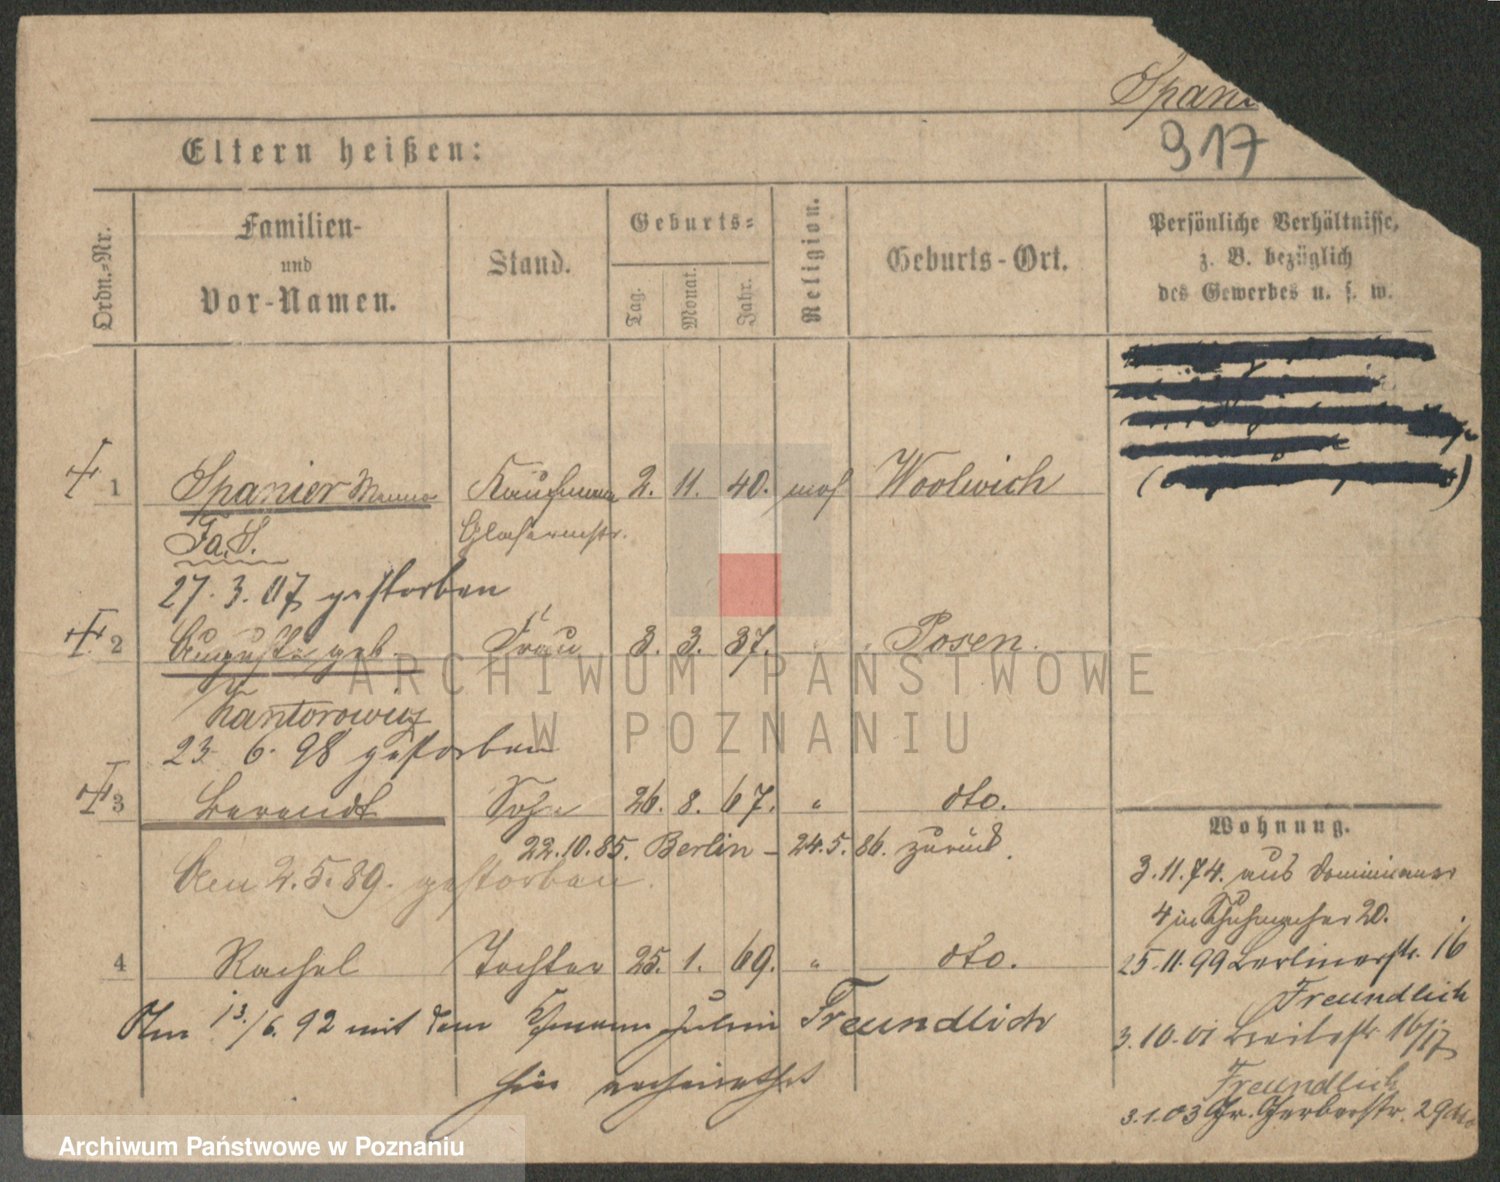 Spani
917
Eltern heißen:
Ordn.-Nr.
Familien-
und
Vor-Namen.
Stand.
Geburts-
Tag.
Monat.
Jahr.
Religion.
Geburts-Ort.
Persönliche Verhältnisse,
z. B. bezüglich
des Gewerbes u. s. w.
1 Spanier Kaufmann 2. 11. 40. mos Woolwich
Fa. S. Glasermstr.
27. 3. 07 gestorben
2 Auguste geb. Frau 3. 3. 37. " Posen.
Kantorowicz
23. 6. 98 gestorben
3 Berendt Sohn 26. 8. 67. " dto.
22.10.85. Berlin - 24.5.86. zurück.
Am 2.5.89. gestorben.
4 Rachel Tochter 25. 1. 69. " dto.
Am 13./6. 92 mit dem Freundlich
hier verheirathet
Wohnung.
3.11.74. aus Dominicanerstr
4 in Schuhmacher 20.
25.11.99 Berlinerstr. 16
Freundlich
3.10.01 Breitestr 16/17
Freundlich
3.1.03 Gr. Gerberstr. 29
ARCHIWUM PAŃSTWOWE
W POZNANIU
Archiwum Państwowe w Poznaniu